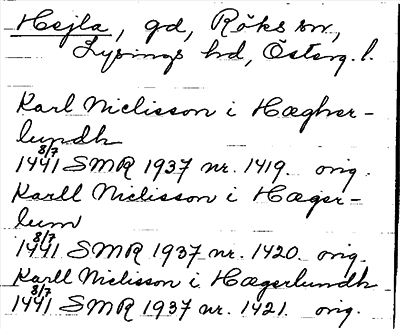 Hejla, gd, Röks sn,
Lysings hd, Österg. l.
Karl Niclisson i Hægher-
lundh
8/7
1441 SMR 1937 nr. 1419. orig.
Karll Niclisson i Hæger-
lum
8/7
1441 SMR 1937 nr. 1420. orig.
Karll Niclisson i Hægerlundh
8/7
1441 SMR 1937 nr. 1421. orig.